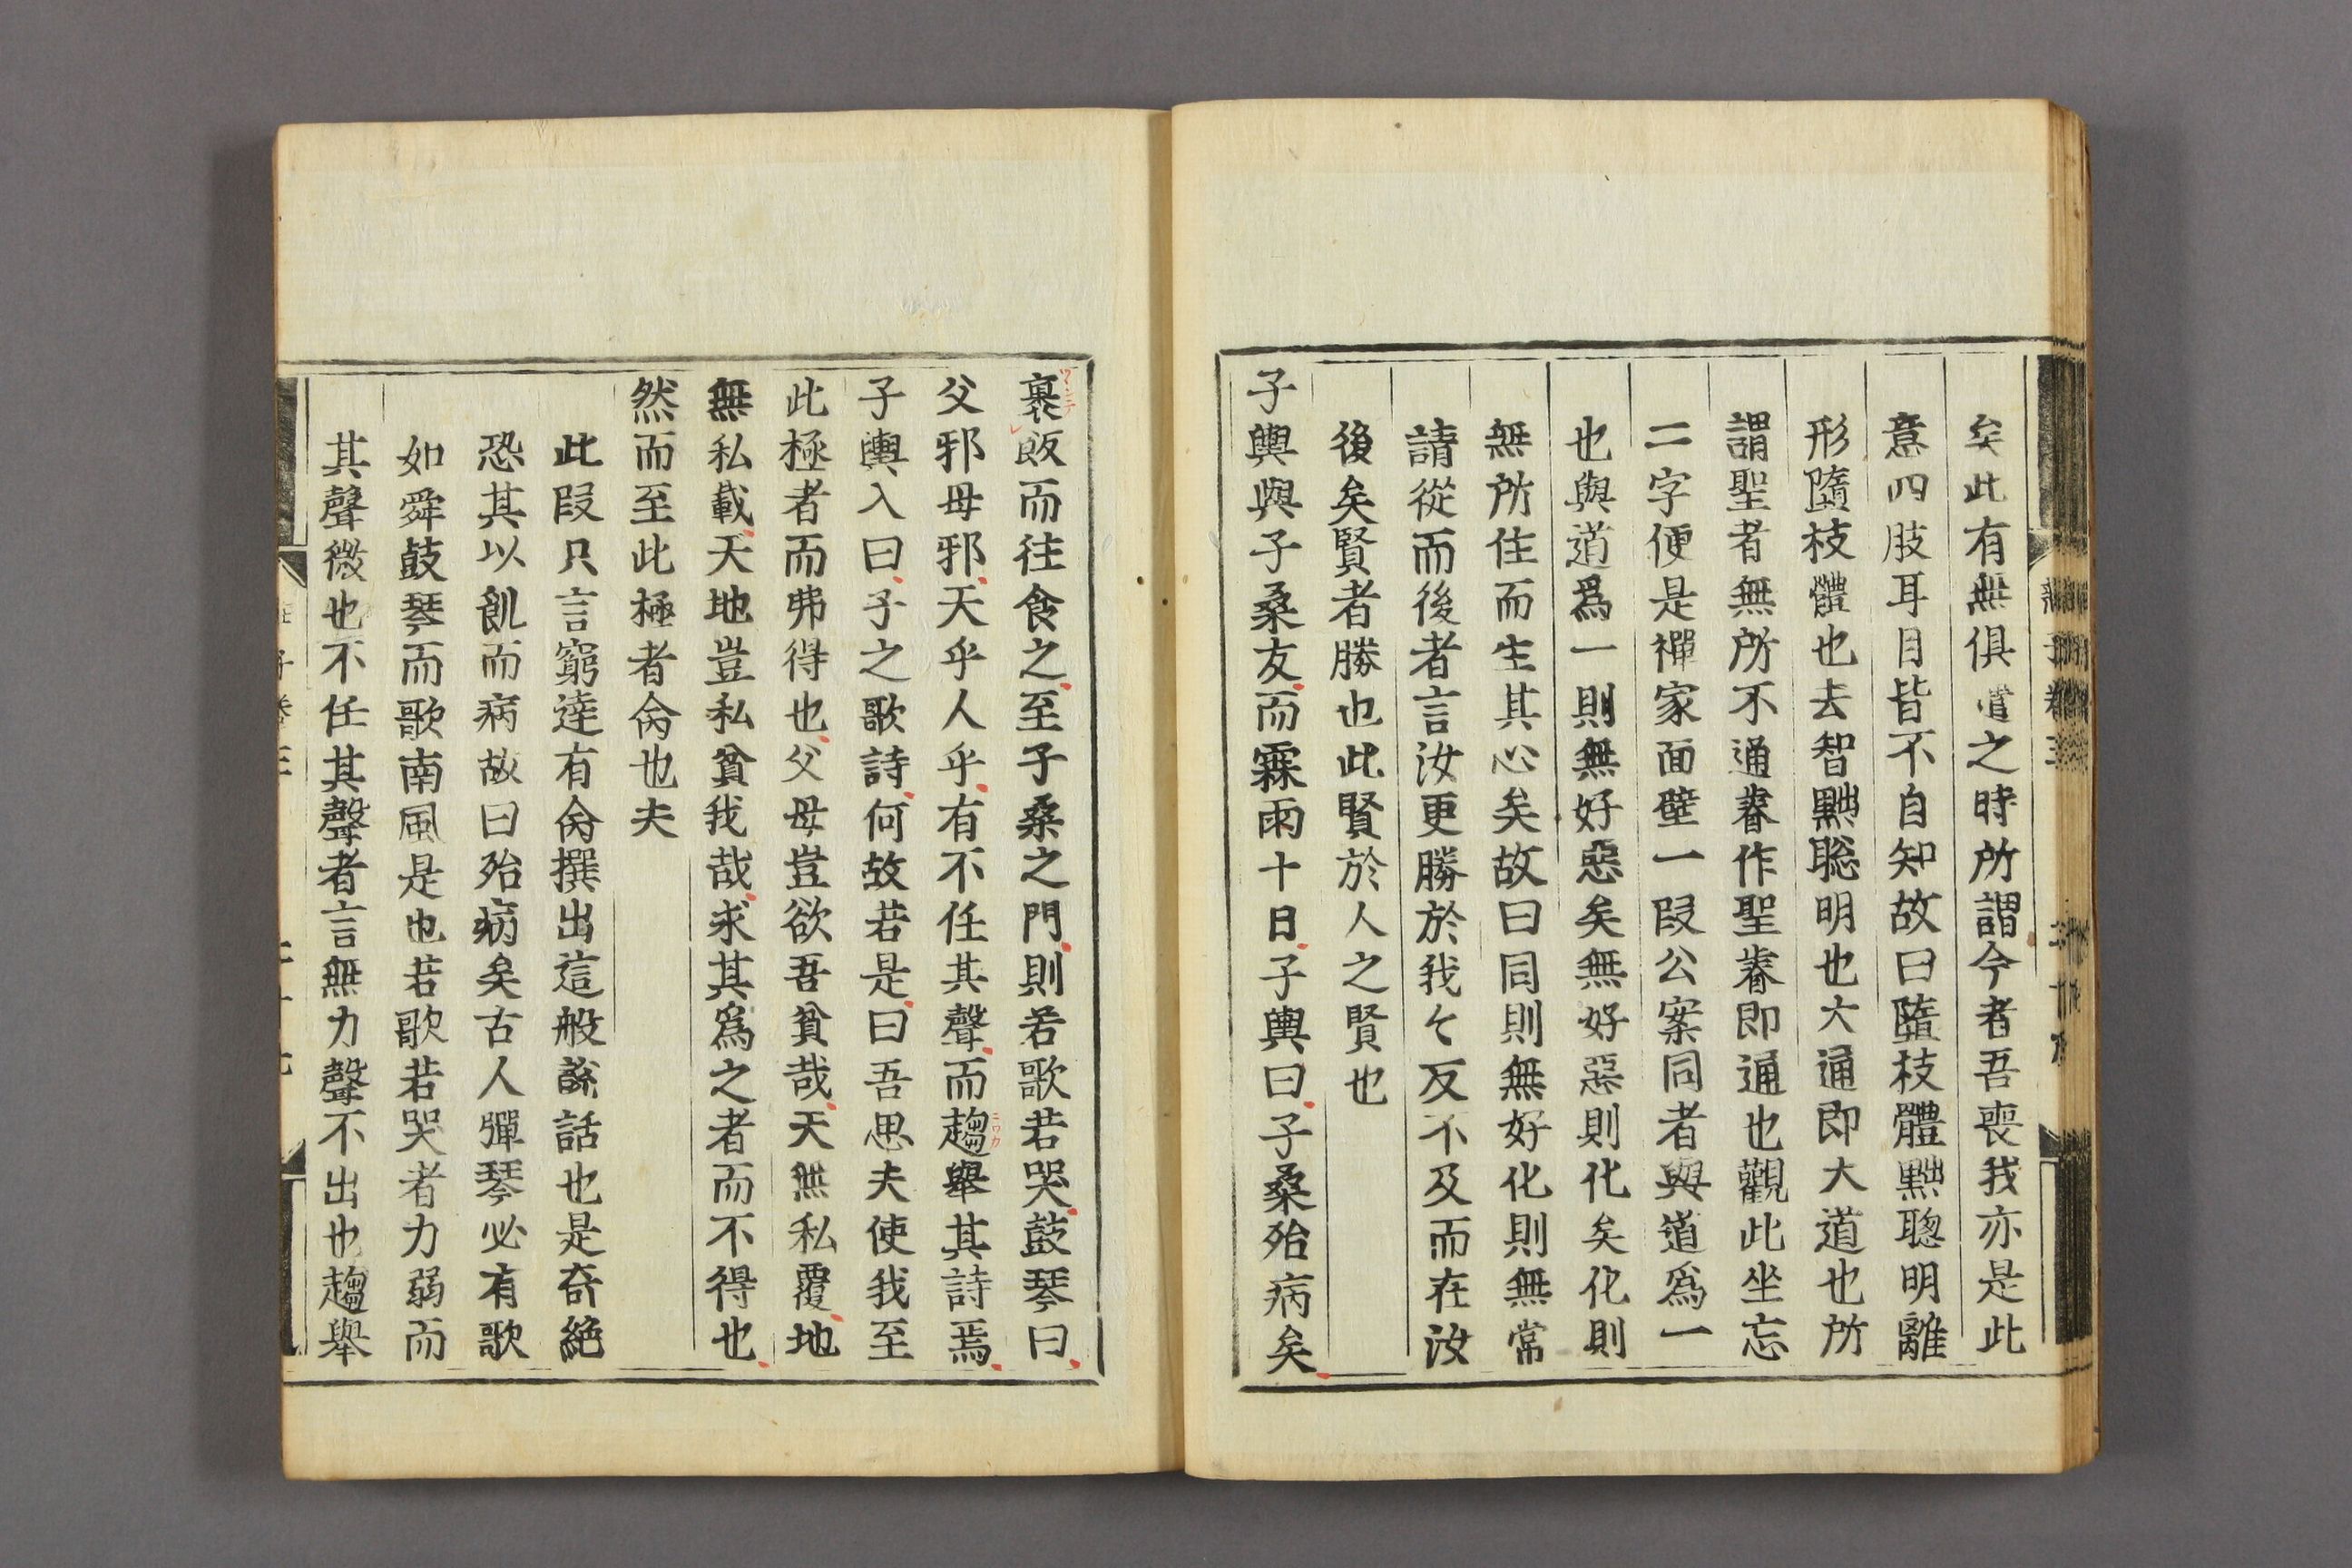 矣此有無俱遣之時所謂今者吾喪我亦是此
意四肢耳目皆不自知故曰墮枝體黜聰明離
形墮枝體也去智黜聡明也大通即大道也所
謂聖者無所不通睿作聖睿即通也觀此坐忘
二字便是禪家面壁一段公案同者與道爲一
也與道爲一則無好惡矣無好惡則化矣化則
無所住而生其心矣故曰同則無好化則無常
請從而後者言汝更勝於我〻反不及而在汝
後矣賢者勝也此賢於人之賢也
子輿與子桑友而霖雨十日子輿曰子桑殆病矣
裹飯而往食之至子桑之門則若歌若哭鼓琴曰
父邪母邪天乎人乎有不任其聲而趨舉其詩焉
子輿入曰子之歌詩何故若是曰吾思夫使我至
此極者而弗得也父母豈欲吾貧哉天無私覆地
無私載天地豈私貧我哉求其爲之者而不得也
然而至此極者命也夫
此段只言窮達有命撰出這般說話也是奇絶
恐其以飢而病故曰殆病矣古人彈琴必有歌
如舜鼓琴而歌南風是也若歌若哭者力弱而
其聲微也不任其聲者言無力聲不出也趨舉